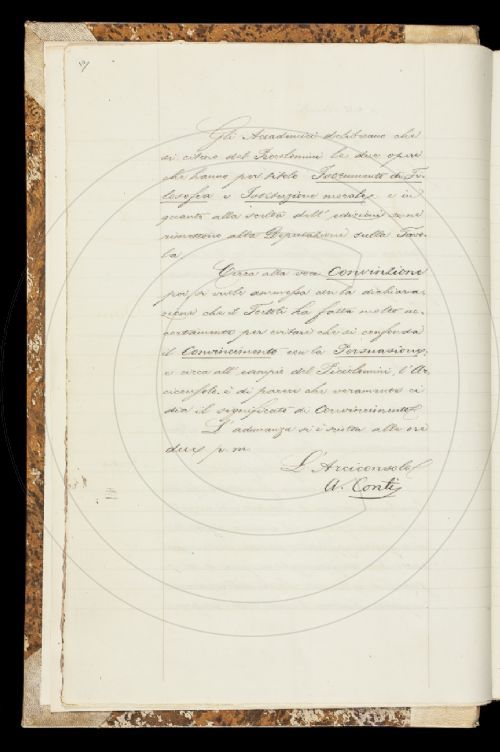 Gli Accademici deliberano che
si citino del Piccolomini le due opere
che hanno per titolo Istrumento di Fi-
losofia e Istituzione morale, e in
quanto alla scelta dell'edizioni se ne
rimettono alla Deputazione sulla Tavo-
la.
Circa alla voce Convinzione
poi si vuole ammessa con la dichiara-
zione che il Tortoli ha fatta molto ac-
certamente per evitare che si confonda
il Convincimento con la Persuasione,
e circa all'esempio del Piccolomini, l'Ar-
ciconsolo è di parere che veramente ci
dia il significato di Convincimento.
L'adunanza si è sciolta alle ore
due p. m.
L'Arciconsolo
A. Conti